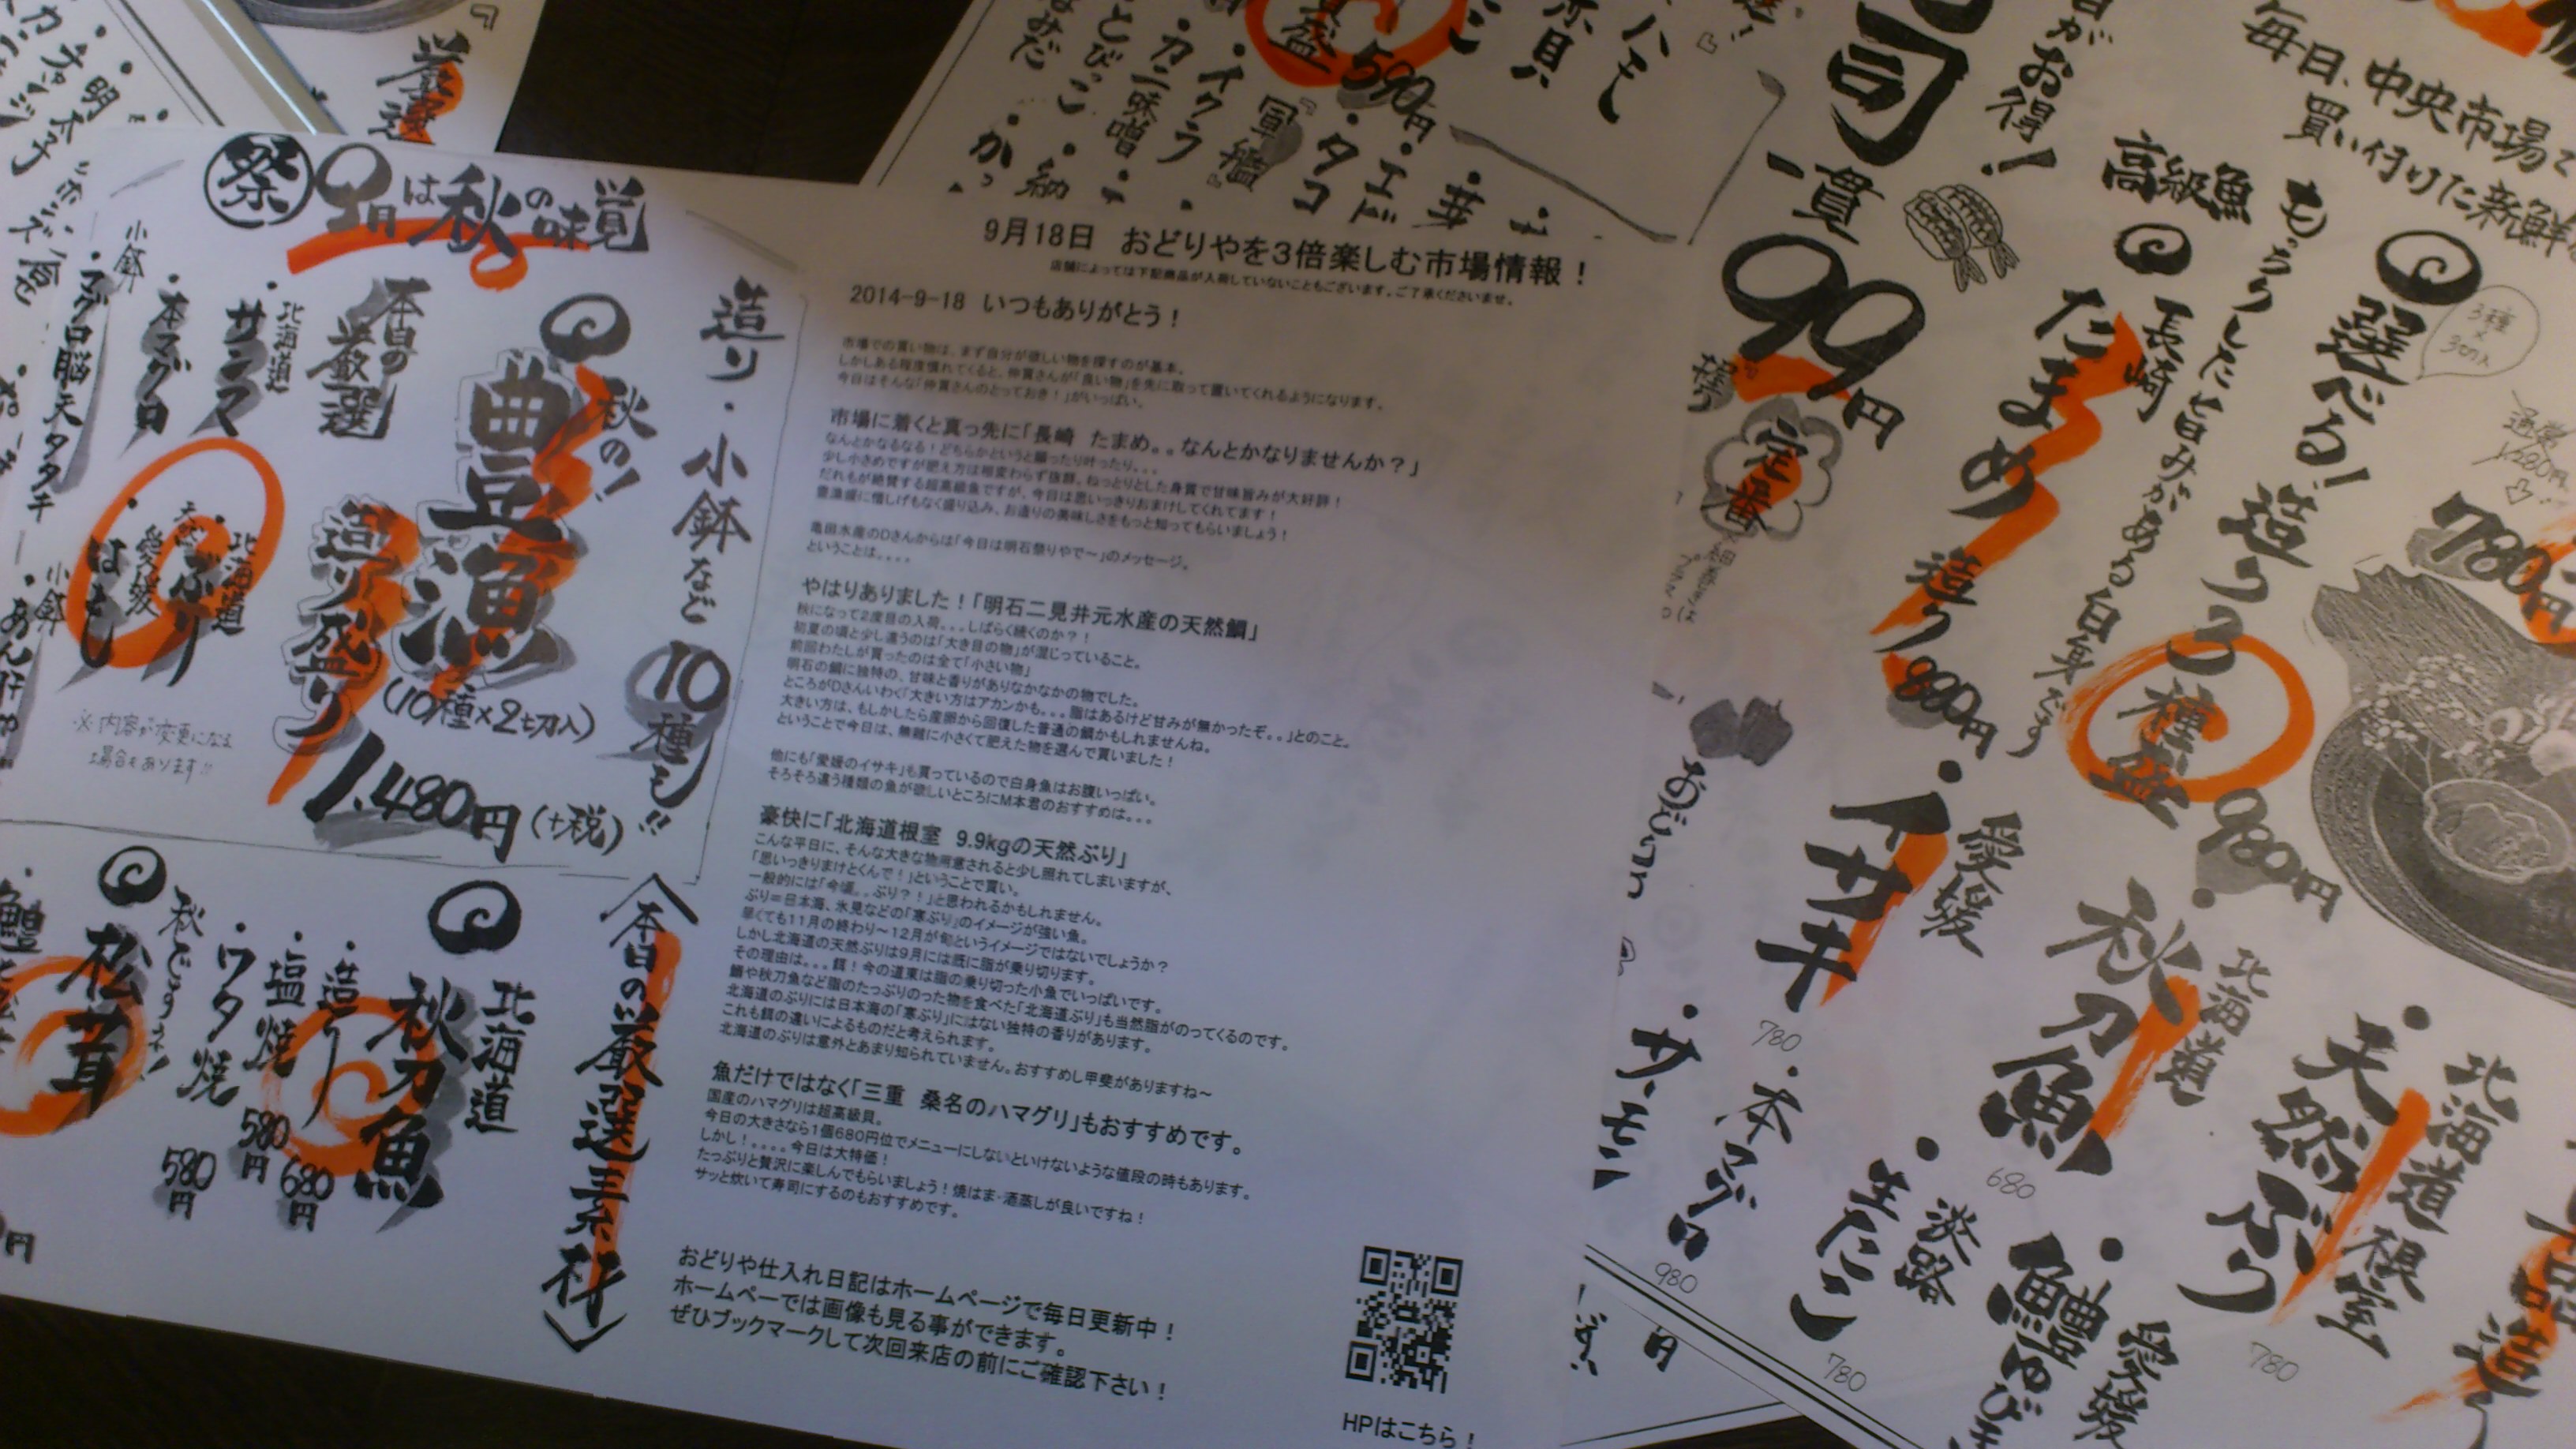 祭 9月は秋の味覚
造り・小鉢など10種も!!
秋の!
豊漁
造り盛り
(10種×2切入)
1.480円(+税)
本日の厳選
北海道
・サンマ
・本マグロ
小鉢
・マグロ脳天タタキ
北海道
天然ぶり
愛媛
・はも
小鉢
※内容が変更になる
場合もあります!!
〈本日の厳選素材〉
北海道
秋刀魚
・造り 680円
・塩焼 580円
・ワタ焼 580円
松茸
明太子
厳選
590円
・タコ
『軍艦』
・イクラ
・カニ味噌
・とびっこ
9月18日 おどりやを3倍楽しむ市場情報!
店舗によっては下記商品が入荷していないこともございます。ご了承くださいませ。
2014-9-18 いつもありがとう!
市場での買い物は、まず自分が欲しい物を探すのが基本。
しかしある程度慣れてくると、仲買さんが「良い物」を先に取って置いてくれるようになります。
今日はそんな「仲買さんのとっておき!」がいっぱい。
市場に着くと真っ先に「長崎 たまめ。。なんとかなりませんか?」
なんとかなるなる!どちらかというと願ったり叶ったり。。。
少し小さめですが肥え方は相変わらず抜群。ねっとりとした身質で甘味旨みが大好評!
だれもが絶賛する超高級魚ですが、今日は思いっきりおまけしてくれてます!
豊漁盛に惜しげもなく盛り込み、お造りの美味しさをもっと知ってもらいましょう!
亀田水産のDさんからは「今日は明石祭りやで～」のメッセージ。
ということは。。。。
やはりありました!「明石二見井元水産の天然鯛」
秋になって2度目の入荷。。。しばらく続くのか?!
初夏の頃と少し違うのは「大き目の物」が混じっていること。
前回わたしが買ったのは全て「小さい物」
明石の鯛に独特の、甘味と香りがありなかなかの物でした。
ところがDさんいわく「大きい方はアカンかも。。。脂はあるけど甘みが無かったぞ。。」とのこと。
大きい方は、もしかしたら産卵から回復した普通の鯛かもしれませんね。
ということで今日は、無難に小さくて肥えた物を選んで買いました!
他にも「愛媛のイサキ」も買っているので白身魚はお腹いっぱい。
そろそろ違う種類の魚が欲しいところにM本君のおすすめは。。。
豪快に「北海道根室 9.9kgの天然ぶり」
こんな平日に、そんな大きな物用意されると少し照れてしまいますが、
「思いっきりまけとくんで!」ということで買い。
一般的には「今頃。。ぶり?!」と思われるかもしれません。
ぶり=日本海、氷見などの「寒ぶり」のイメージが強い魚。
早くても11月の終わり～12月が旬というイメージではないでしょうか?
しかし北海道の天然ぶりは9月には既に脂が乗り切ります。
その理由は。。。餌!今の道東は脂の乗り切った小魚でいっぱいです。
鰯や秋刀魚など脂のたっぷりのった物を食べた「北海道ぶり」も当然脂がのってくるのです。
北海道のぶりには日本海の「寒ぶり」にはない独特の香りがあります。
これも餌の違いによるものだと考えられます。
北海道のぶりは意外とあまり知られていません。おすすめし甲斐がありますね～
魚だけではなく「三重 桑名のハマグリ」もおすすめです。
国産のハマグリは超高級貝。
今日の大きさなら1個680円位でメニューにしないといけないような値段の時もあります。
しかし!。。。。今日は大特価!
たっぷりと贅沢に楽しんでもらいましょう!焼はま・酒蒸しが良いですね!
サッと炊いて寿司にするのもおすすめです。
おどりや仕入れ日記はホームページで毎日更新中!
ホームペーでは画像も見る事ができます。
ぜひブックマークして次回来店の前にご確認下さい!
HPはこちら!
がお得!
司 一貫 99円
定番
毎日、中央市場
買い付けた新鮮
選べる!造り3種盛 980円
3種×3切入
780円
高級魚
長崎
たまめ 造り 980円
もっちりした旨みがある白身です
愛媛
・イサキ
780
北海道
・秋刀魚
680
北海道根室
・天然ぶり
780
・サーモン
・本マグロ
980
淡路
・生たこ
780
愛媛
・鱧ゆびき